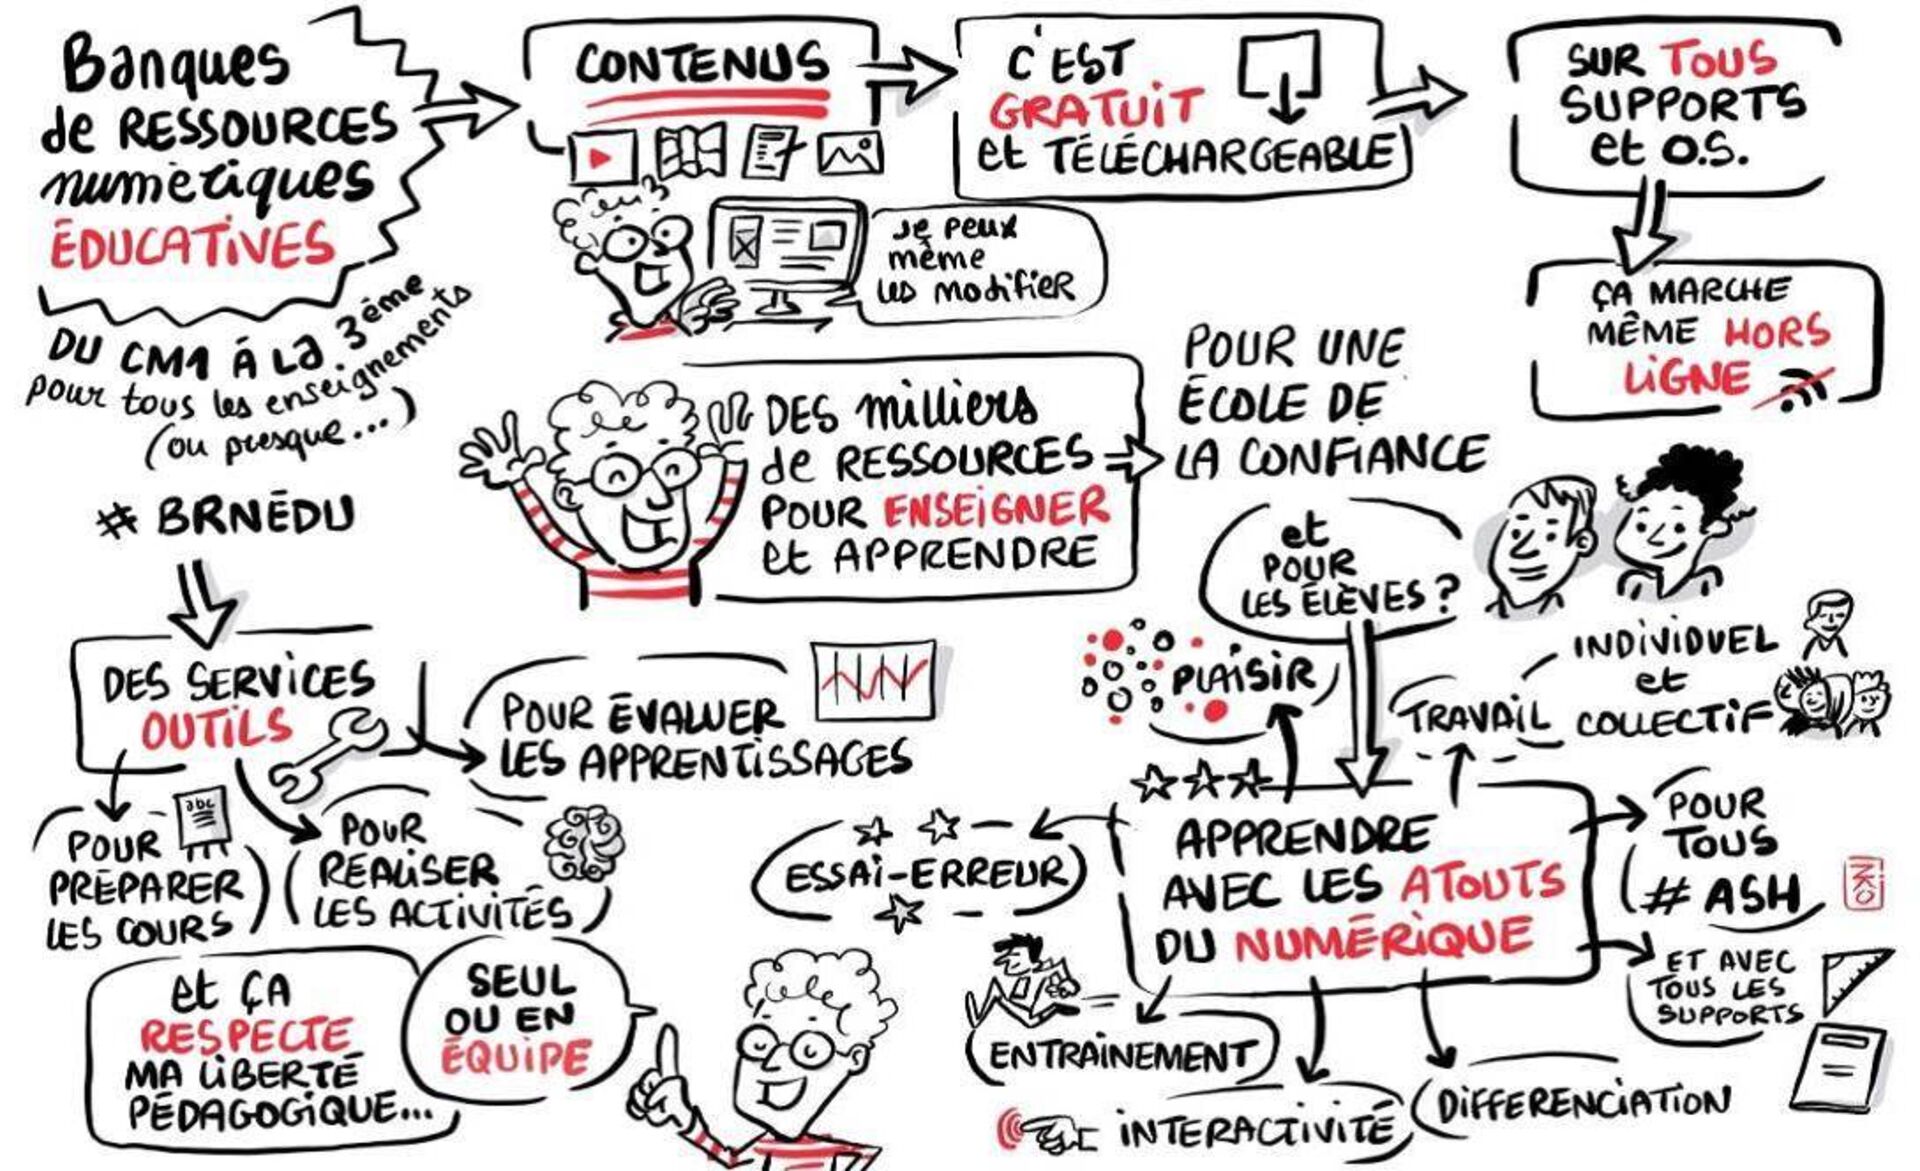 Banques
de RESSOURCES
numériques
ÉDUCATIVES
DU CM1 À La 3ème
pour tous les enseignements
(ou presque...)
# BRNÉDU
CONTENUS
Je peux
même
les modifier
C'EST
GRATUIT
et TÉLÉCHARGEABLE
SUR TOUS
SUPPORTS
et O.S.
ÇA MARCHE
MÊME HORS
LIGNE
DES milliers
de RESSOURCES
POUR ENSEIGNER
et APPRENDRE
POUR UNE
ÉCOLE DE
LA CONFIANCE
et
POUR
LES ÉLÈVES ?
DES SERVICES
OUTILS
POUR ÉVALUER
LES APPRENTISSAGES
abc
POUR
PRÉPARER
LES COURS
POUR
RÉALISER
LES ACTIVITÉS
et ÇA
RESPECTE
MA LIBERTÉ
PÉDAGOGIQUE...
SEUL
OU EN
ÉQUIPE
PLAISIR
TRAVAIL
INDIVIDUEL
et
COLLECTIF
ESSAI-ERREUR
APPRENDRE
AVEC LES ATOUTS
DU NUMÉRIQUE
POUR
TOUS
# ASH
INKO
ET AVEC
TOUS LES
SUPPORTS
ENTRAINEMENT
INTERACTIVITÉ
DIFFERENCIATION